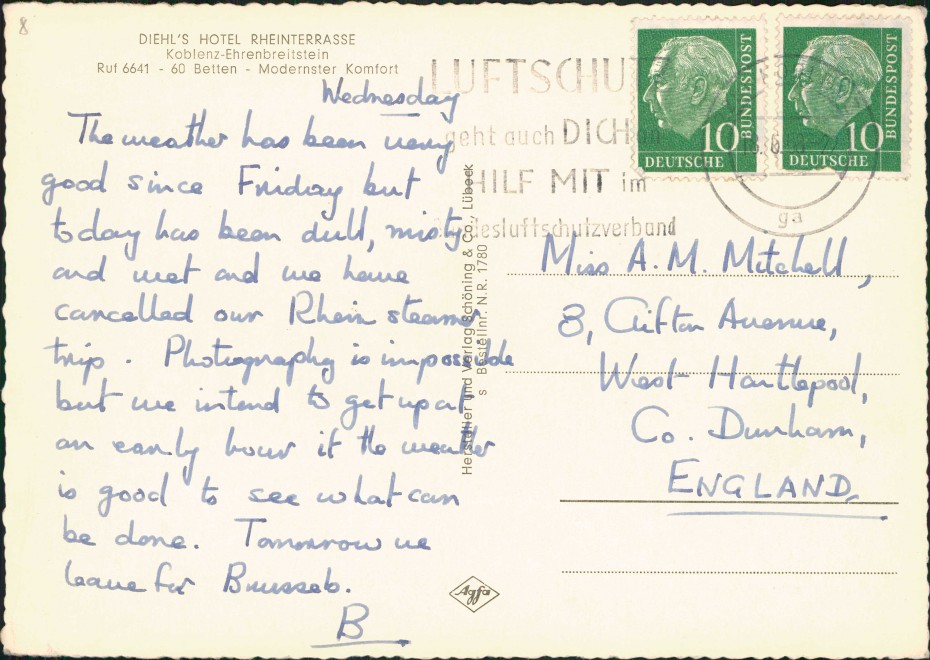 8
DIEHL'S HOTEL RHEINTERRASSE
Koblenz-Ehrenbreitstein
Ruf 6641 - 60 Betten - Modernster Komfort
Wednesday
The weather has been very
good since Friday but
today has been dull, misty
and wet and we have
cancelled our Rhein steamer
trip. Photography is impossible
but we intend to get up at
an early hour if the weather
is good to see what can
be done. Tomorrow we
leave for Brussels.
B
Hersteller und Verlag Schöning & Co., Lübeck
s Bestellnr. N.R. 1780
Agfa
LUFTSCHU
geht auch DICH an
HILF MIT im
desluftschutzverband
10
DEUTSCHE
BUNDESPOST
10
DEUTSCHE
BUNDESPOST
ga
Miss A. M. Mitchell,
8, Clifton Avenue,
West Hartlepool,
Co. Durham,
ENGLAND.